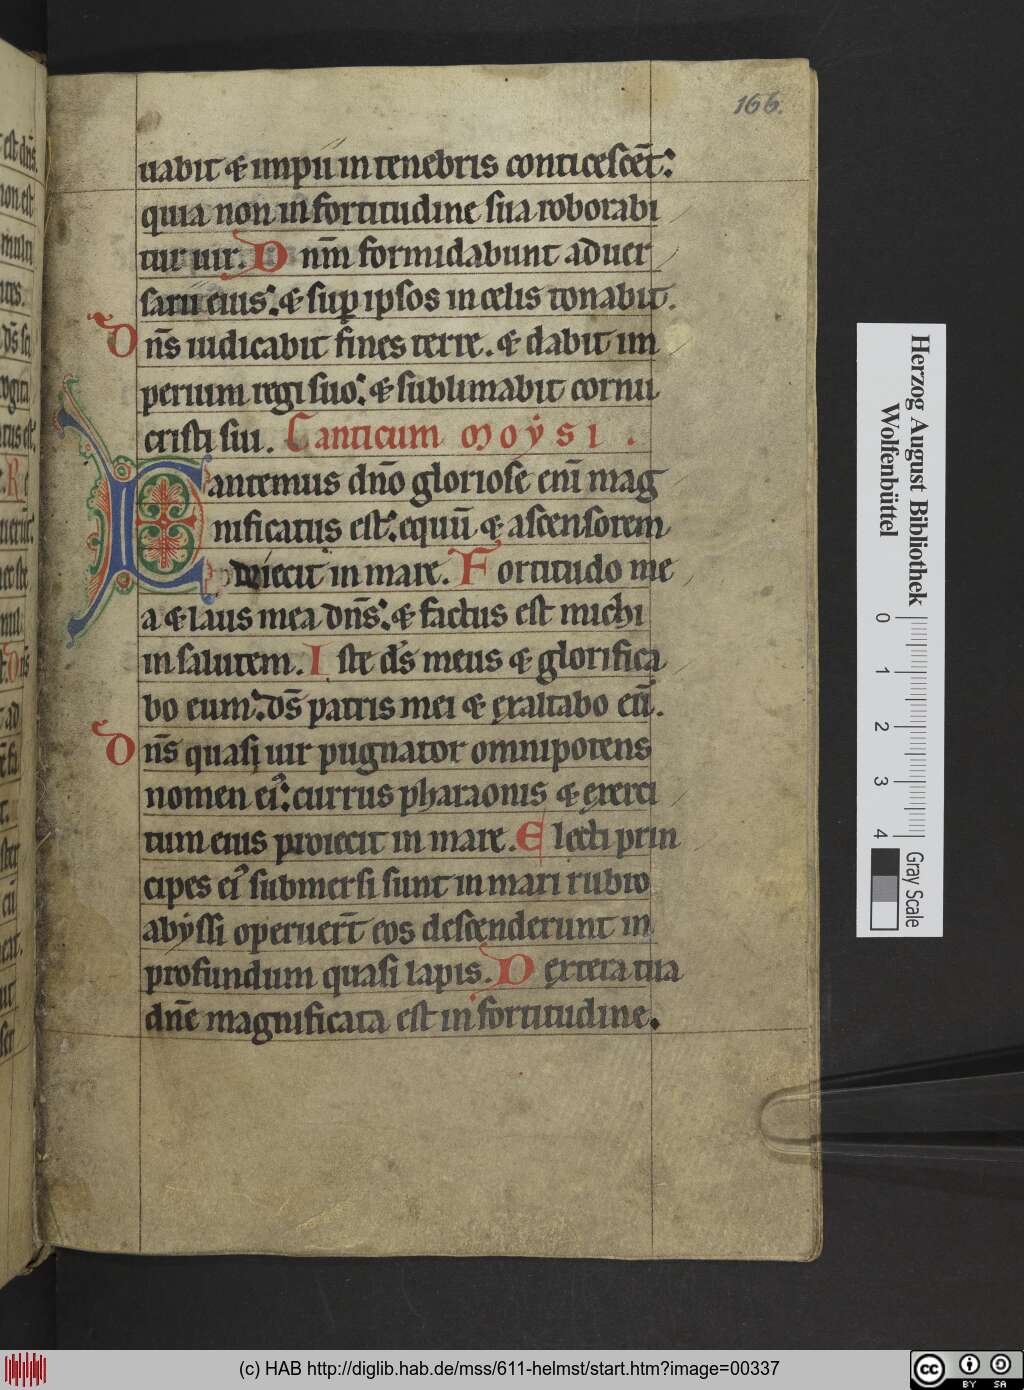 166.
uabit & impii in tenebris conticescēt:
quia non in fortitudine sua roborabi
tur uir. D nm̄ formidabunt aduer
sarii eius: & sup ipsos in celis tonabit.
Dn̄s iudicabit fines terre. & dabit im
perium regi suo: & sublimabit cornu
cristi sui. Canticum moẏsi.
Cantemus dn̄o gloriose eni mag
nificatus est: equū & ascensorem
proiecit in mare. Fortitudo me
a & laus mea dn̄s: & factus est michi
in salutem. Iste ds̄ meus & glorifica
bo eum: ds̄ patris mei & exaltabo eū.
Dn̄s quasi uir pugnator omnipotens
nomen ei': currus pharaonis & exerci
tum eius proiecit in mare. Electi prin
cipes ei' submersi sunt in mari rubro
abẏssi operuer̄t eos descenderunt in
profundum quasi lapis. Dextera tua
dn̄e magnificata est in fortitudine.
Herzog August Bibliothek
Wolfenbüttel
0 1 2 3 4
Gray Scale
(c) HAB http://diglib.hab.de/mss/611-helmst/start.htm?image=00337
cc BY SA